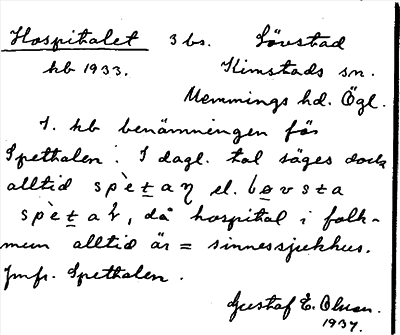 Hospitalet 3 bs. Lövstad
kb 1933. Kimstads sn.
Memmings hd. Ögl.
I. kb benämningen för
Spethalen. I dagl. tal säges dock
alltid spètaŋ el. bøvsta
spètaḷ, då hospital i folk-
mun alltid är = sinnessjukhus.
Jmfr. Spethalen.
Gustaf E. Olsson.
1937.